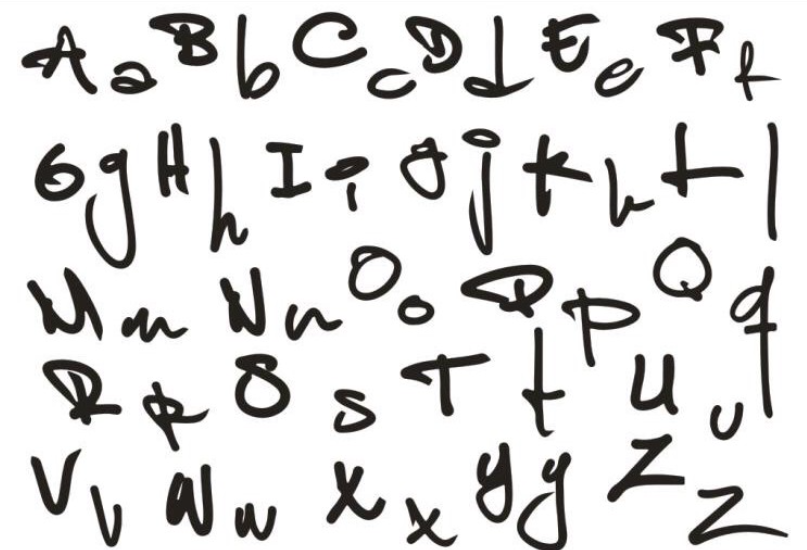 A a B b C c D d E e F f
G g H h I i J j K k L l
M m N n O o P p Q q
R r S s T t U u
V v W w X x Y y Z z